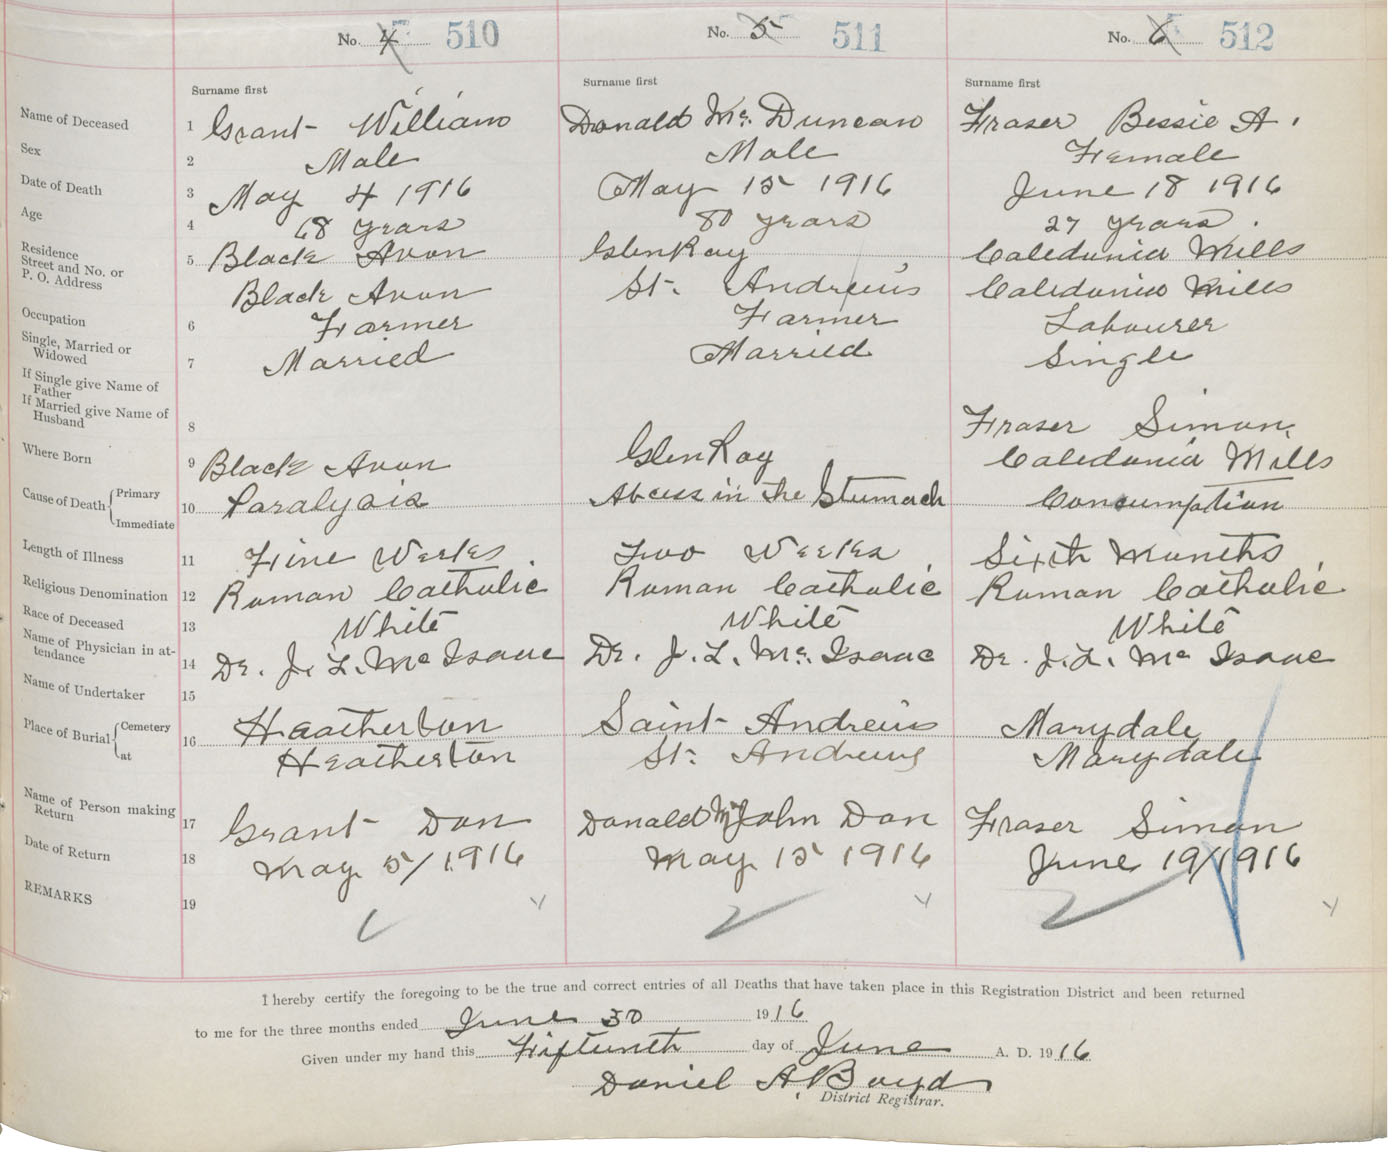 No. 4 510 No. 5 511 No. 6 512
Surname first Surname first Surname first
Name of Deceased 1 Grant William Donald Mc. Duncan Fraser Bessie A.
Sex 2 Male Male Female
Date of Death 3 May 4 1916 May 15 1916 June 18 1916
Age 4 68 years 80 years 27 years.
Residence 5 Black Avon GlenRoy Caledonia Mills
Street and No. or
P. O. Address Black Avon St. Andrew's Caledonia Mills
Occupation 6 Farmer Farmer Labourer
Single, Married or
Widowed 7 Married Married Single
If Single give Name of
Father
If Married give Name of
Husband 8 Fraser Simon
Where Born 9 Black Avon GlenRoy Caledonia Mills
Cause of Death { Primary
Immediate 10 Paralysis Abcess in the Stumach Consumption
Length of Illness 11 Fine Weeks Two Weeks Sixth Months
Religious Denomination 12 Roman Catholic Roman Catholic Roman Catholic
Race of Deceased 13 White White White
Name of Physician in at-
tendance 14 Dr. J. L. Mc Isaac Dr. J. L. Mc. Isaac Dr. J. L. Mc Isaac
Name of Undertaker 15
Place of Burial { Cemetery 16 Heatherton Saint Andrews Marydale
at Heatherton St. Andrews Marydale
Name of Person making
Return 17 Grant Dan Donald Mc John Dan Fraser Simon
Date of Return 18 May 5/1916 May 15 1916 June 19/1916
REMARKS 19
I hereby certify the foregoing to be the true and correct entries of all Deaths that have taken place in this Registration District and been returned
to me for the three months ended June 30 1916
Given under my hand this Fifteenth day of June A. D. 1916
Daniel A. Boyd
District Registrar.